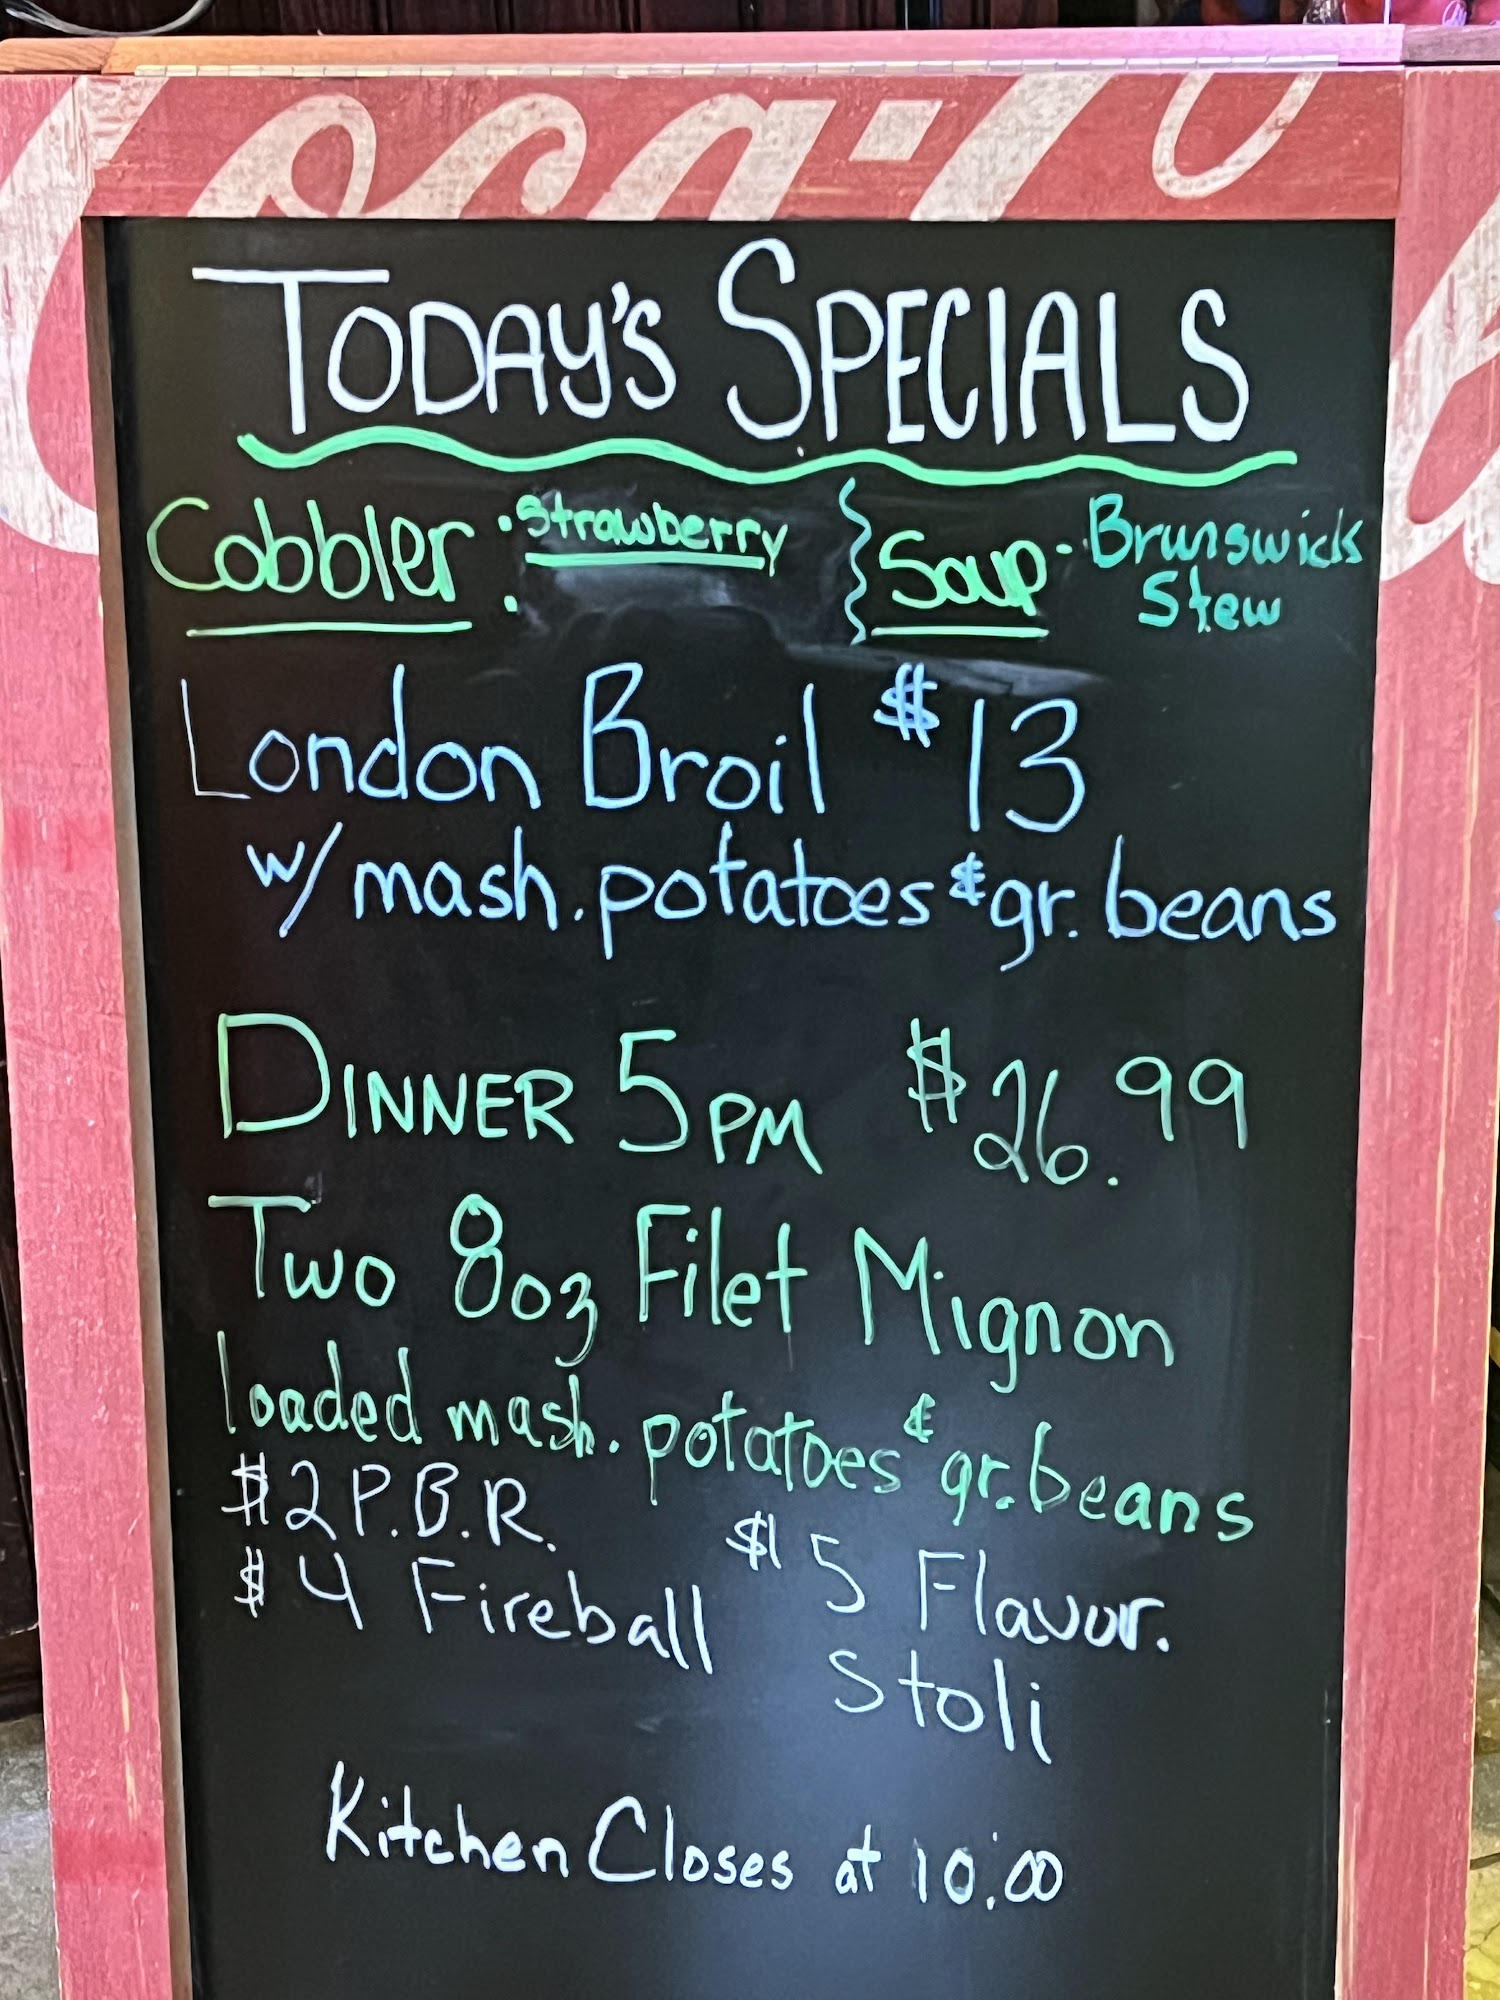 Coca-Co
TODAY'S SPECIALS
Cobbler : Strawberry
Soup - Brunswick
Stew
London Broil $13
w/ mash. potatoes & gr. beans
DINNER 5PM $26.99
Two 8oz Filet Mignon
loaded mash. potatoes & gr. beans
$2 P.B.R.
$4 Fireball
$5 Flavor.
Stoli
Kitchen Closes at 10:00